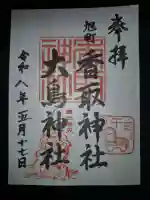 奉拝
旭町
香取神社
大鳥神社
令和八年五月十七日